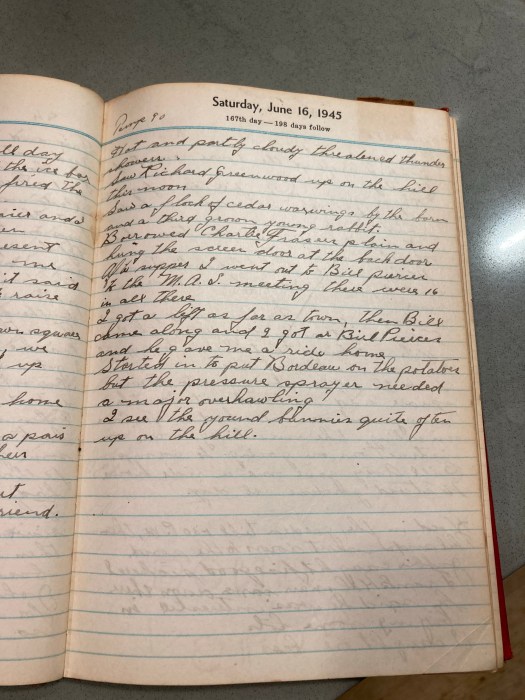 ll day
the ice box
fired the
and a
esent
me
it said
raise
own square
we
up
home
a pair
their
it
riend.
Saturday, June 16, 1945
167th day — 198 days follow
90
Hot and partly cloudy threatened thunder
showers.
Saw Richard Greenwood up on the hill
this noon
Saw a flock of cedar waxwings by the barn
and a third grown young rabbit.
Borrowed Charlie Frasier plain and
hung the screen door at the back door
After supper I went out to Bill
to the M.A.S. meeting there were 16
in all there
I got a left as far as town, then Bill
came along and I got as Bill Pierces
and he gave me a ride home
Started in to put Bordeau on the potatoes
but the pressure sprayer needed
a major overhawling
I see the yound bunnies quite often
up on the hill.